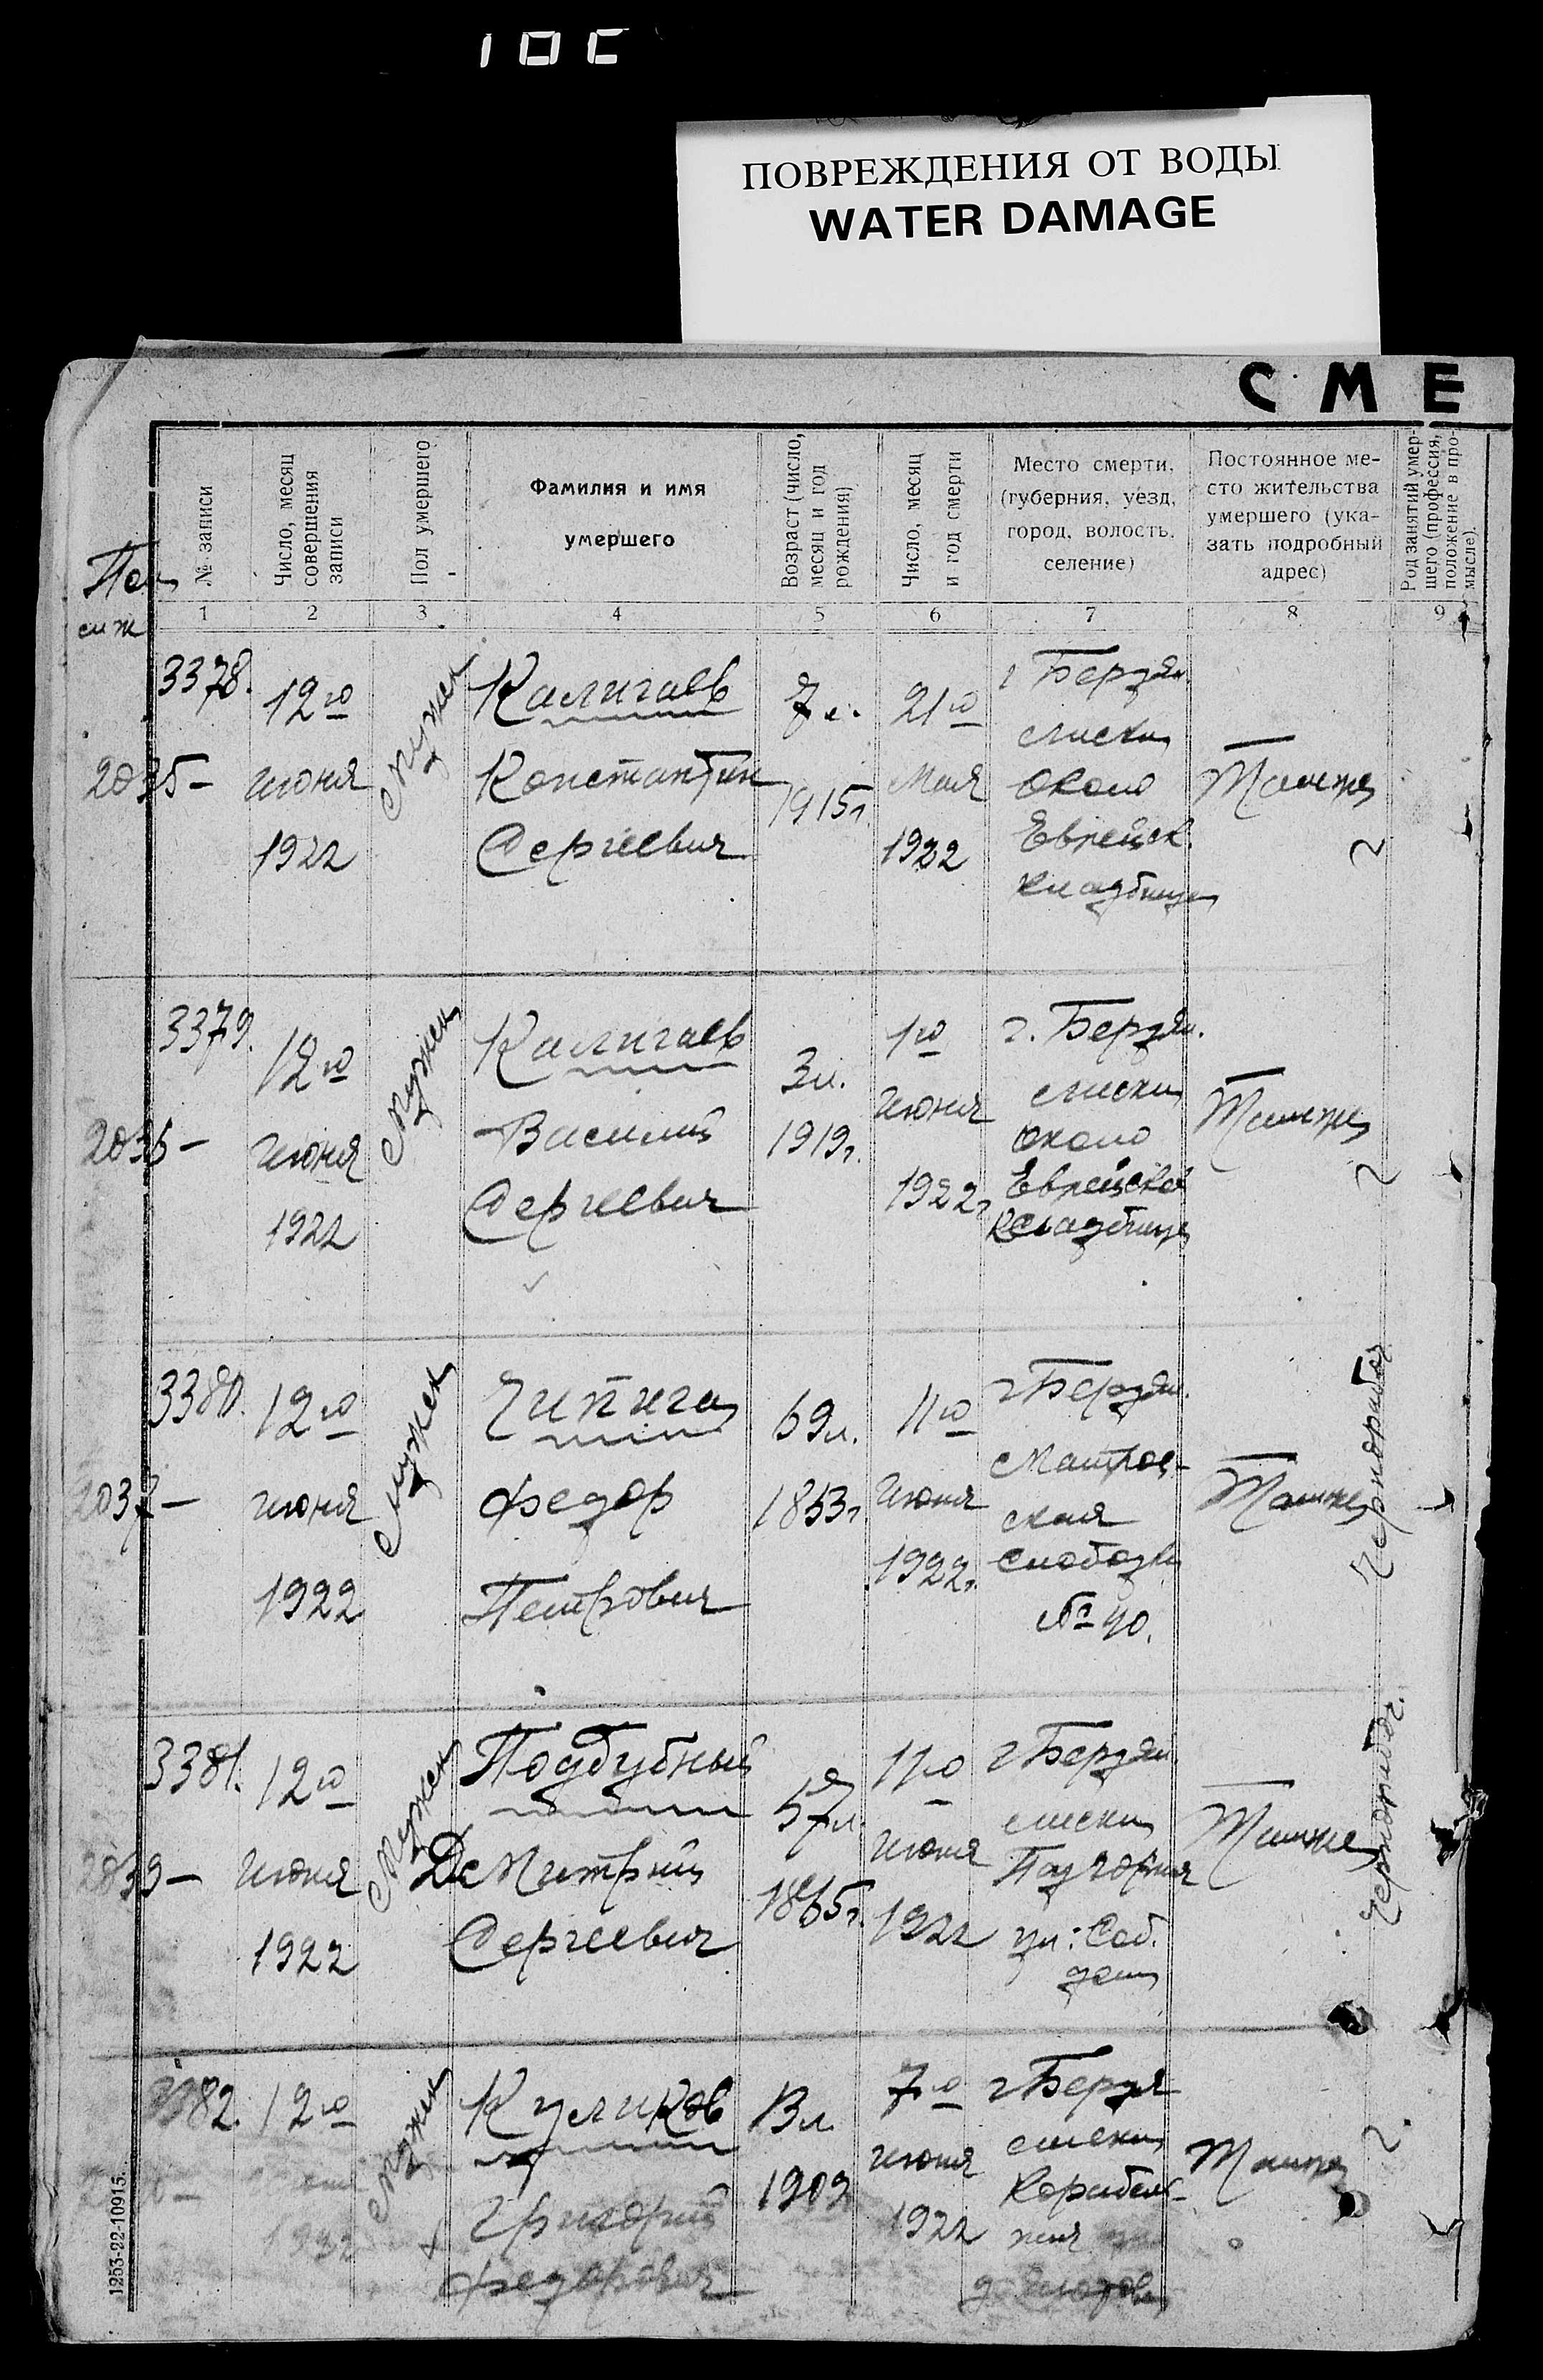 ПОВРЕЖДЕНИЯ ОТ ВОДЫ
WATER DAMAGE
СМЕ
№ записи
Число, месяц
совершения
записи
Пол умершего
Фамилия и имя
умершего
Возраст (число,
месяц и год
рождения)
Число, месяц
и год смерти
Место смерти,
(губерния, уезд,
город, волость,
селение)
Постоянное ме-
сто жительства
умершего (ука-
зать подробный
адрес)
Род занятий умер-
шего (профессия,
положение в про-
мысле).
1 2 3 4 5 6 7 8 9
3378.
2035-
12го
июня
1922
Мужск
Калигаев
Константин
Сергеевич
7 л.
1915г.
21го
Мая
1922
г Бердян
ск
около
Еврейск.
кладбища
Там же
3379.
2036-
12го
июня
1922
Мужск
Калигаев
Василий
Сергеевич
3 л.
1919г.
1го
июня
1922г
г. Бердян.
ск
около
Еврейско
кладбища
Там же
3380.
2037-
12го
июня
1922
Мужск
Чипига
Федор
Петрович
69 л.
1853г
11го
июня
1922г.
г Бердян.
Матрос-
ская
слободка
№ 40.
Там же
Чернорабоч
3381.
2039-
12го
июня
1922
Мужск
Поддубный
Дмитрий
Сергеевич
57 л
1865г.
11го
июня
1922
г Бердян.
ск
Подгорная
ул: Соб.
дом
Там же
Чернорабоч.
3382.
12го
1922
Мужск
Куликов
Григорий
Федорович
13 л
1909
7го
июня
1922
г Бердя
нск
Корабель-
ная
Там же
1253-22-10915.